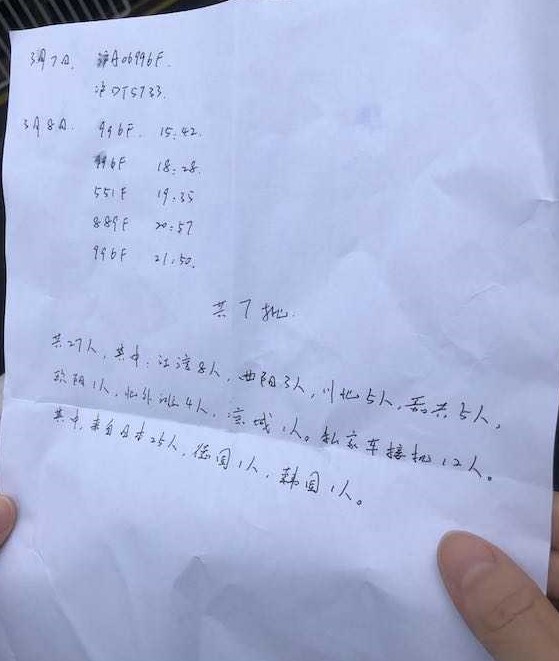 3月7日. 沪A06996F.
沪DT5733.
3月8日. 996F. 15:42.
996F 18:28.
551F 19:35
889F 20:57
996F 21:50.
共7批.
共27人, 其中, 江湾8人, 曲阳3人, 川北5人, 嘉兴5人,
欧阳1人, 北外滩4人, 凉城1人。私家车接机12人。
其中, 来自日本25人, 德国1人, 韩国1人。